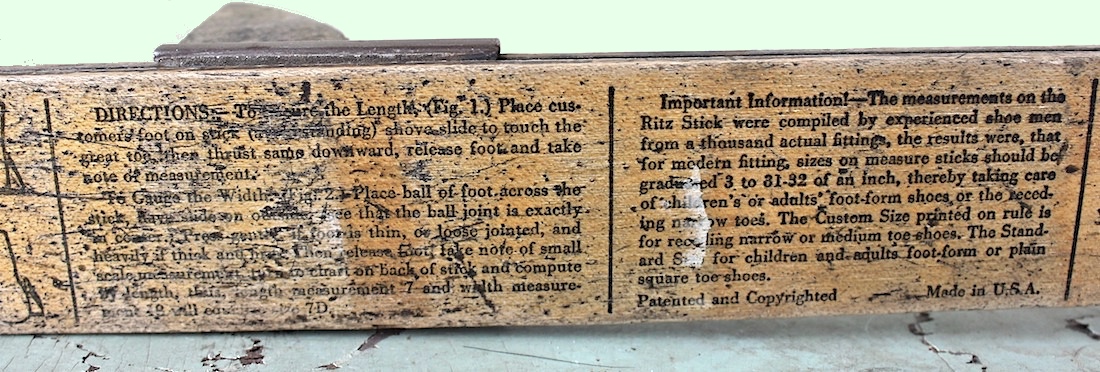 DIRECTIONS:- To the Length, (Fig. 1.) Place cus-
tomers foot on stick standing) shove slide to touch the
great toe, then thrust same downward, release foot and take
note of measurement.
To Gauge the Width, (Fig. 2.) Place ball of foot across the
stick, have slide on see that the ball joint is exactly
in if foot is thin, or loose jointed, and
heavily if thick and Then release foot, take note of small
scale measurement, to chart on back of stick and compute
length, thus, length measurement 7 and width measure-
ment 12 will 7D.
Important Information!—The measurements on the
Ritz Stick were compiled by experienced shoe men
from a thousand actual fittings, the results were, that
for modern fitting, sizes on measure sticks should be
3 to 31-32 of an inch, thereby taking care
of children's or adults' foot-form shoes or the reced-
ing narrow toes. The Custom Size printed on rule is
for receding narrow or medium toe shoes. The Stand-
ard for children and adults foot-form or plain
square toe shoes.
Patented and Copyrighted Made in U.S.A.